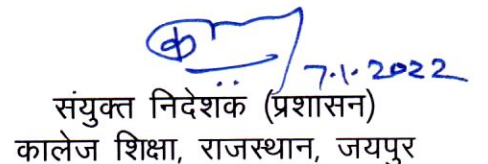 7.1.2022
संयुक्त निदेशक (प्रशासन)
कालेज शिक्षा, राजस्थान, जयपुर